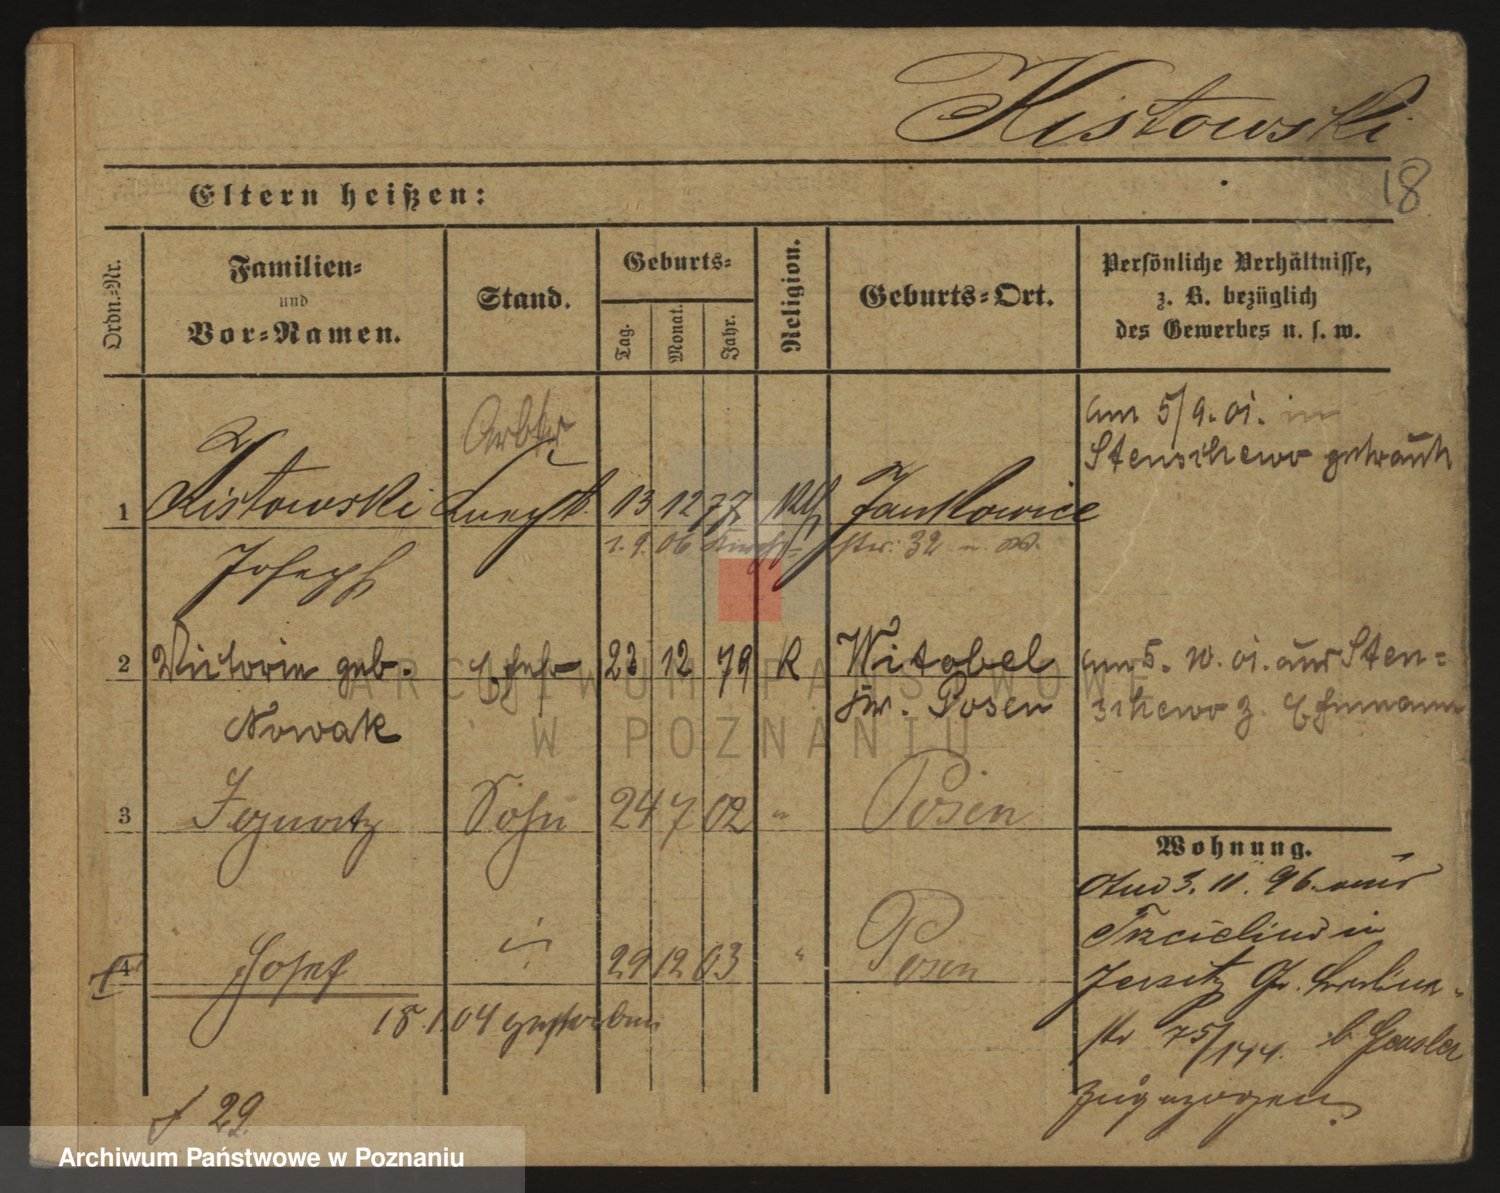 Kistowski
18
Eltern heißen:
Ordn.-Nr.
Familien-
und
Vor-Namen.
Stand.
Geburts-
Tag.
Monat.
Jahr.
Religion.
Geburts-Ort.
Persönliche Verhältnisse,
z. B. bezüglich
des Gewerbes u. s. w.
Arbtr
am 5/9. 01. in
Stenschewo getraut
1 Kistowski Knecht 13 12 77 Jankowice
1. 9. 06 str. 32
Joseph
2 Victoria geb. Ehefr 23 12 79 K Witobel
am 5. 10. 01. aus Sten-
Nowak Kr. Posen
schewo z. Ehemann
3 Ignatz Sohn 24 7 02 " Posen
Wohnung.
3. 11. 96. aus
Trcielino in
4 Josef 29 12 03 " Posen
Jersitz Gr. Berliner-
18. 1 04 gestorben
str 75/144. b. Gensler
zugezogen.
f 29.
ARCHIWUM PAŃSTWOWE
W POZNANIU
Archiwum Państwowe w Poznaniu